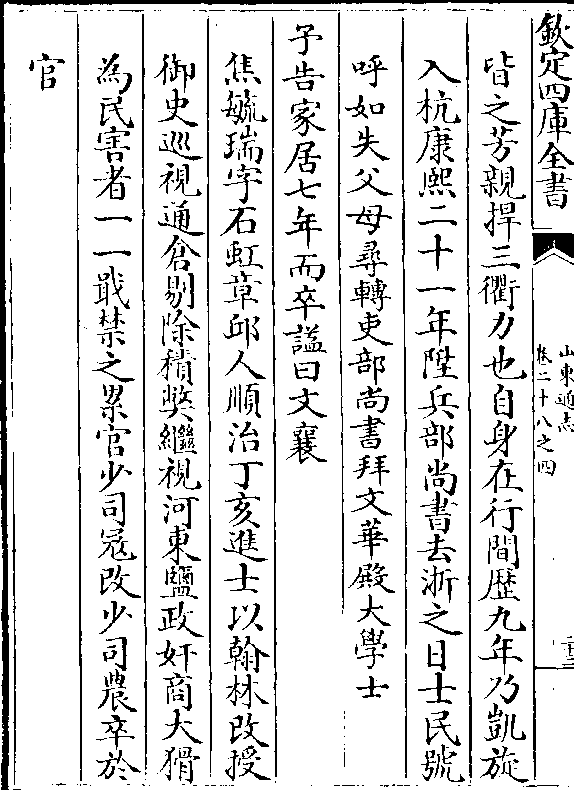 欽定四庫全書
山東通志
卷二十八之四
皆之芳親捍三衢力也自身在行間歴九年乃凱旋
入杭康熙二十一年陞兵部尚書去浙之日士民號
呼如失父母尋轉吏部尚書拜文華殿大學士
予告家居七年而卒諡曰文襄
焦毓瑞字石虹章邱人順治丁亥進士以翰林改授
御史巡視通倉剔除積奬繼視河東鹽政奸商大猾
為民害者一一戢禁之累官少司冦改少司農卒於
官